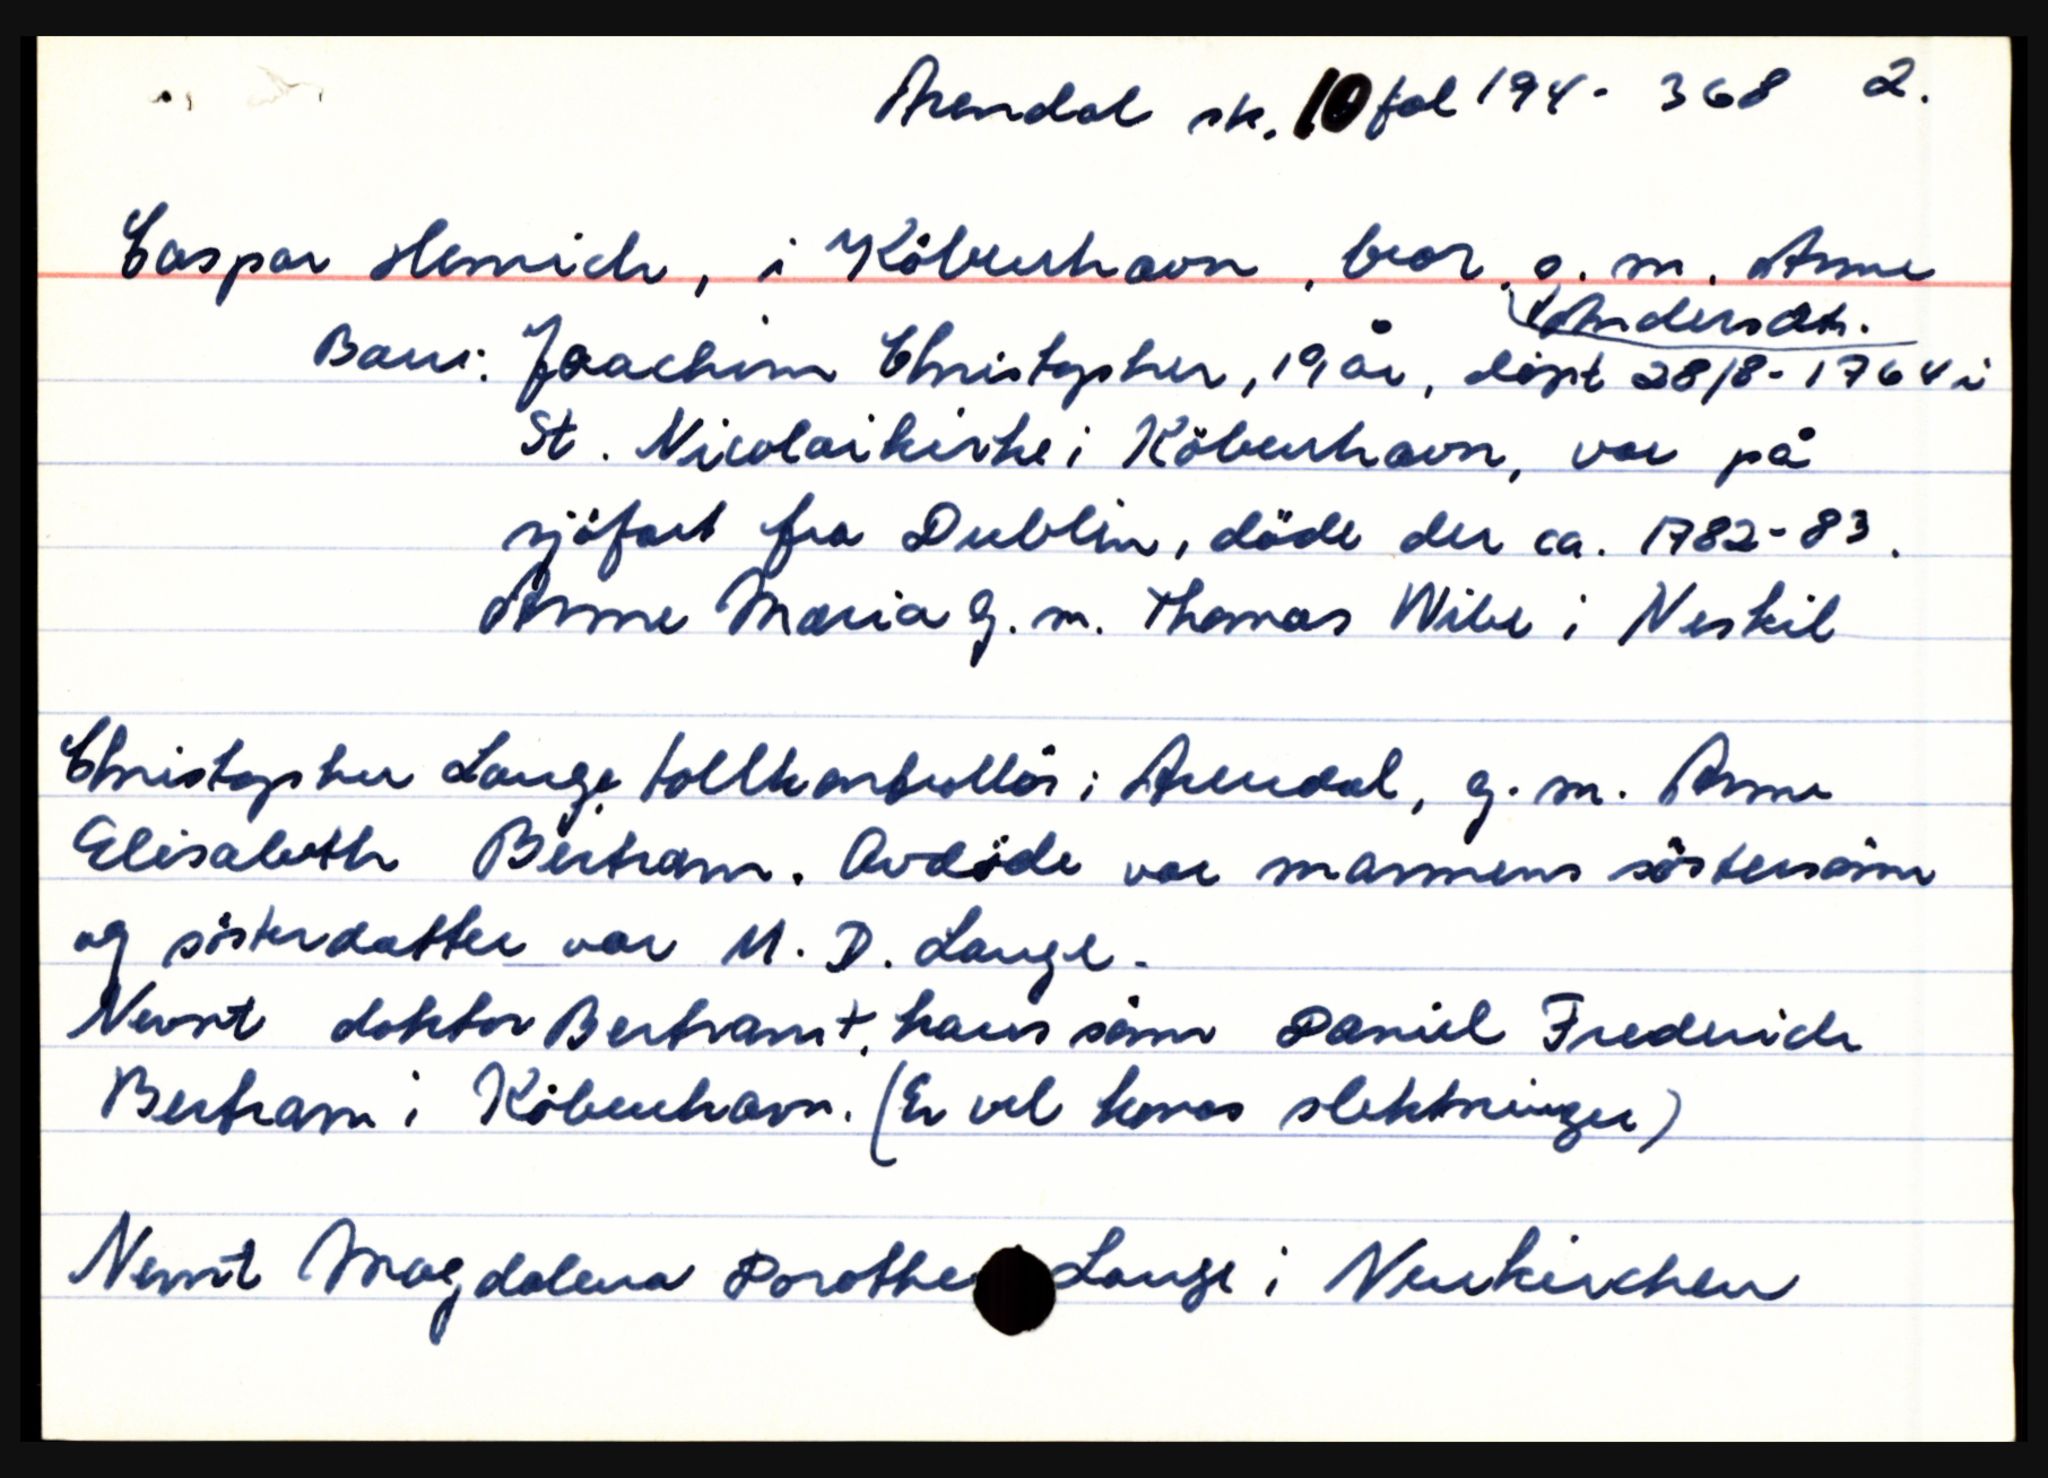 Arendal sk. 10 fol 194- 368 2.
Caspar Henrich, i Köbenhavn, bror, g.m. Anne
Andersdtr.
Barn: Joachim Christopher, 19 år, döpt 28/8-1764 i
St. Nicolaikirke i Köbenhavn, var på
sjöfart fra Dublin, döde der ca. 1782-83.
Anne Maria g.m. Thomas Wibe i Neskil
Christopher Lange, tollkontrollör i Arendal, g.m. Anne
Elisabeth Bertram. Avdöde var mannens söstersönn
og sösterdatter var M. D. Lange.
Nevnt doktor Bertram +, hans sönn Daniel Frederich
Bertram i Köbenhavn. (Er vel konas slektninger)
Nevnt Magdalena Dorothe Lange i Neukirchen